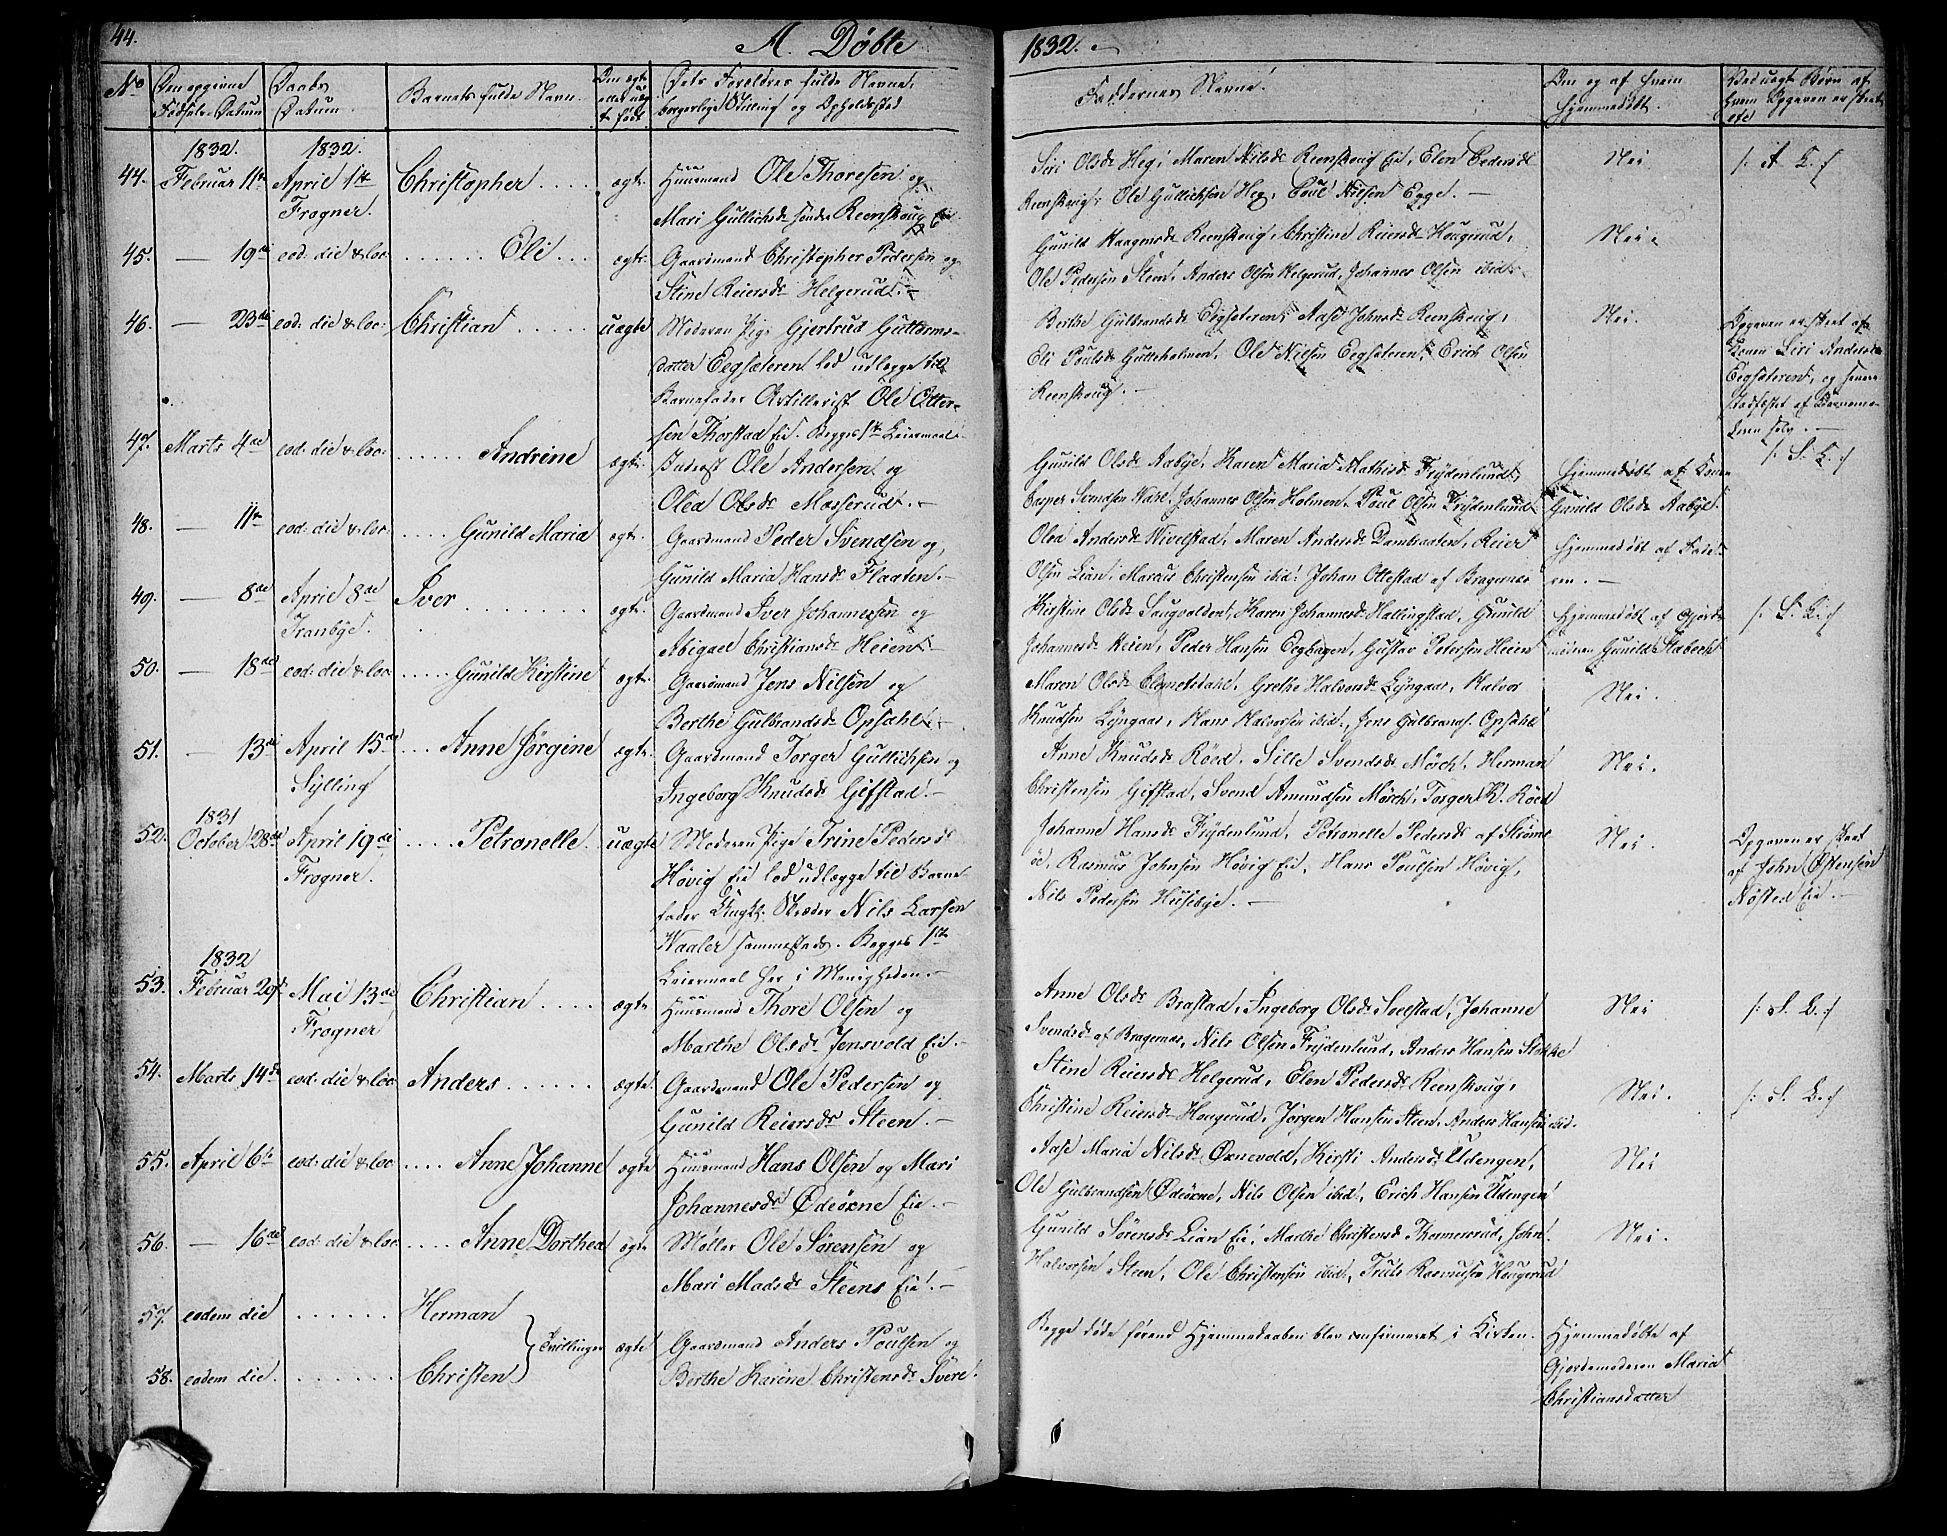 44. A. Døbte 1832.
No
Den opgivne Fødsels-Datum
Daabs Datum
Barnets fulde Navn.
Om ægte eller uægte født.
Dets Foreldres fulde Navne, borgerlige Stilling og Opholdssted
Faddernes Navne.
Om og af hvem hjemmedøbt.
Ved uægte Børn af hvem Opgaven er skeet etc
1832. 1832.
44. Februar 11te April 1ste Christopher .... ægte. Huusmand Ole Thoresen og
Frogner. Mari Gullichsdr søndre Reenskoug Eie
Siri Olsdr Heg, Maren Nilsdr Reenskoug Eie, Elen Pedersdr
Reenskoug, Ole Gullichsen Heg, Poul Nilsen Egge. —
Nei
45. — 19de eod. die & loc. ...... Eli ... ægte. Gaardmand Christopher Pedersen og
Stine Reiersdr Helgerud. —
Gunild Haagensdr Reenskoug, Christine Reiersdr Hougerud,
Ole Pedersen Steen, Anders Olsen Helgerud, Johannes Olsen ibid.
Nei.
46. — 23de eod. die & loc: Christian ..... uægte Moderen Pige Gjertrud Guttorms-
datter Eegsæteren lod udlægge til
Barnefader Artillerist Ole Otter-
sen Thorstad Eie. Begges 1ste Leiermaal.
Berthe Gulbrandsdr Eegsæteren, Aase Johnsdr Reenskoug,
Eli Poulsdr Gutteholmen, Ole Nilsen Eegsæteren, Erich Olsen
Reenskoug. —
Nei.
Opgaven er skeet af
Konen Siri Andersdr
Eegsæteren, og senere
stadfæstet af Barnemo-
deren selv. —
47. Marts 4de eod: die & loc. ...... Andrine ægte. Inderst Ole Andersen og
Olea Olsdr Masserud. —
Gunild Olsdr Aabye, Karen Maria Mathisdr Frydenlund,
Casper Svendsen Kare, Johannes Olsen Holmen, Poul Olsen Frydenlund
Hjemmedøbt af Konen
Gunild Olsdr Aabye.
/: S. L. :/
48. — 11te eod. die & loc. .... Gunild Maria ægte. Gaardmand Peder Svendsen og
Gunild Maria Hansdr Flaaten. —
Olea Andersdr Nivelstad, Maren Andersdr Dambraaten, Reier
Olsen Lian, Marcus Christensen ibid. Johan Ottestad af Bragernæs
Hjemmedøbt af Fade-
ren. —
49. — 8de April 8de Iver ....... ægte. Gaardmand Iver Johannesen og
Tranbye. Abigael Christiansdr Heien —
Kirstine Olsdr Saugvolden, Karen Johannesdr Hallingstad, Gunild
Johannesdr Heien, Peder Hansen Eeghagen, Gustav Petersen Heien
Hjemmedøbt af Gjorde-
moderen Gunild Stabech
/: S. L. :/
50. — 18de eod: die & loc. ..... Gunild Kirstine ægte. Gaardmand Jens Nilsen og
Berthe Gulbrandsdr Opsahl. —
Maren Olsdr Clemetsdahl, Grethe Halvorsdr Lyngaas, Halvor
Knudsen Lyngaas, Hans Halvorsen ibid., Jens Gulbrands. Opsahl
Nei.
51. — 13de April 15de ... Anne Jørgine ægte. Gaardmand Torger Gullichsen og
Sylling Ingeborg Knudsdr Gifstad. —
Anne Knudsdr Rôed, Sille Svendsdr Môrch, Herman
Christensen Gifstad, Svend Amundsen Môrch, Torger K. Rôed
Nei.
1831
52. October 28de April 19de ..... Petronelle. uægte Moderen Pige Trine Pedersdr
Frogner. Høvig Eie lod udlægge til Barne-
fader Ungk. Skræder Nils Larsen
Waaler sammesteds. Begges 1ste
Leiermaal her i Menigheden. —
Johanne Hansdr Frydenlund, Petronelle Pedersdr af Strøms-
øe, Rasmus Johnsen Høvig Eie, Hans Poulsen Høvig,
Nils Pedersen Husebye. —
Nei.
Opgaven er skeet
af John Østensen
Nøsted Eie. —
1832
53. Februar 29de Mai 13de Christian .... ægte Huusmand Thore Olsen og
Frogner Marthe Olsdr Jonsvold Eie. —
Anne Olsdr Brastad, Ingeborg Olsdr Solstad, Johanne
Svendsdr af Bragernæs, Nils Olsen Frydenlund, Anders Hansen Stokke
Nei /: S. L. :/
54. Marts 14de eod: die & loc Anders ...... ægte. Gaardmand Ole Pedersen og
Gunild Reiersdr Steen. —
Stine Reiersdr Helgerud, Elen Pedersdr Reenskoug,
Christine Reiersdr Hougerud, Jørgen Hansen Steen, Anders Hansen ibid.
Nei. /: S. L. :/
55. April 6te eod: die & loc .... Anne Johanne ægte Huusmand Hans Olsen og Mari
Johannesdr Ødeørne Eie. —
Aase Maria Nilsdr Ørnevold, Kirsti Andersdr Udengen,
Ole Gulbrandsen Ødeørne, Nils Olsen ibid, Erich Hansen Udengen
Nei
56. — 16de eod: die & loc. .... Anne Dorthea ægte Møller Ole Sørensen og
Mari Madsdr Steens Eie. —
Gunild Sørensdr Lian Eie, Marthe Christensdr Thommesrud, John
Halvorsen Steen, Ole Christensen ibid., Truls Rasmusen Hougerud
Nei.
57. eodem die ...... Herman
58. eodem die. ...... Christen
Tvillinger ægte Gaardmand Anders Poulsen og
Berthe Karine Christensdr Svere.
Begge døde førend Hjemmedaaben blev confirmeret i Kirken.
Hjemmedøbte af
Gjordemoderen Maria
Christiansdatter